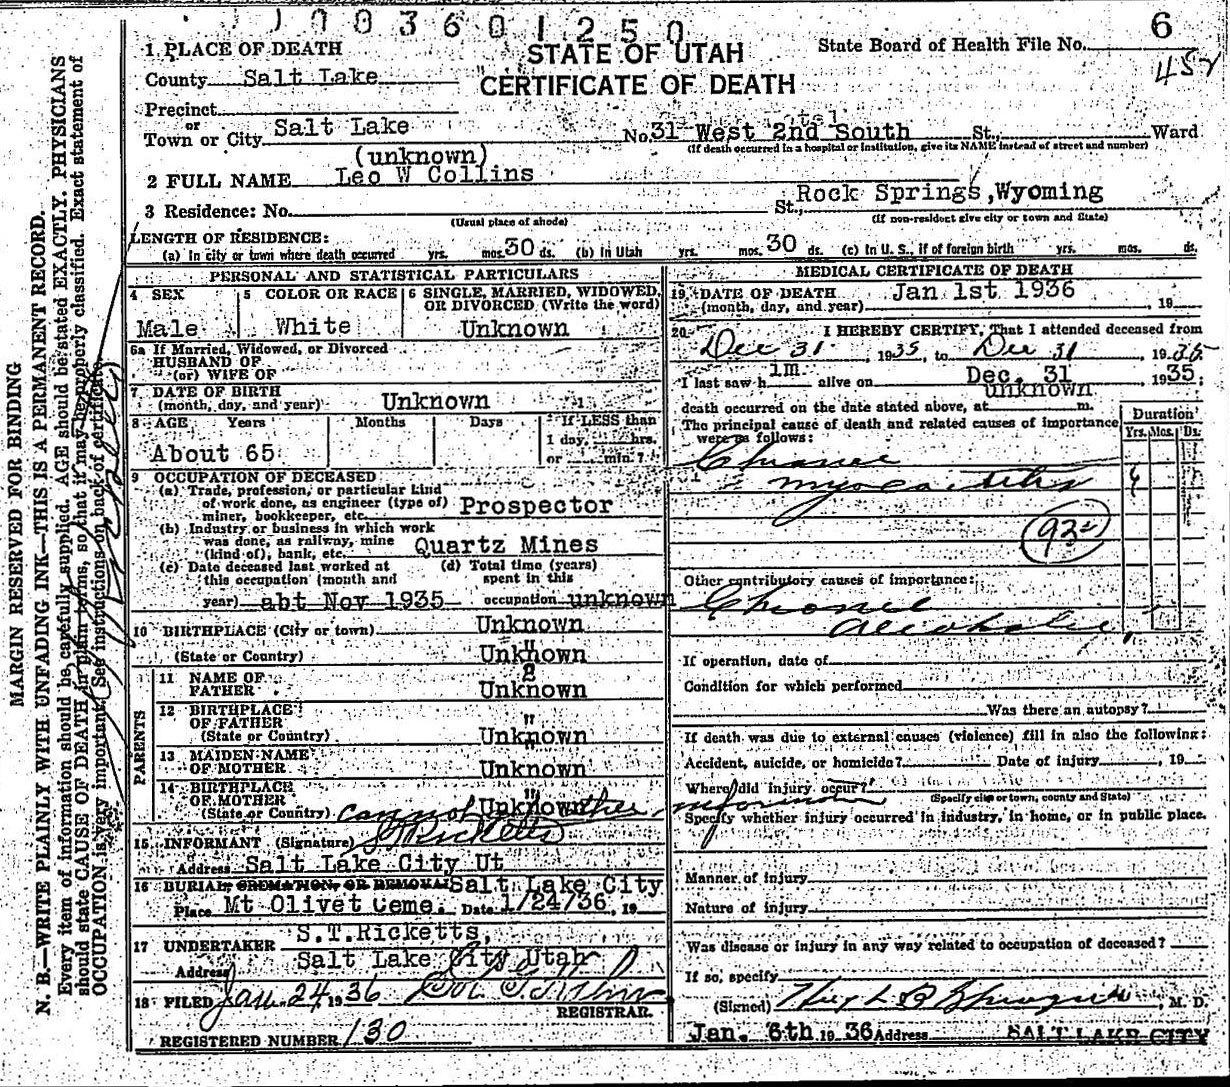 1003601250
1 PLACE OF DEATH
STATE OF UTAH
State Board of Health File No. 6
County Salt Lake
CERTIFICATE OF DEATH
Precinct
or
Town or City Salt Lake No. 31 West 2nd South St., Ward
(If death occurred in a hospital or institution, give its NAME instead of street and number)
(unknown)
2 FULL NAME Leo W Collins
3 Residence: No. St., Rock Springs, Wyoming
(Usual place of abode) (If non-resident give city or town and State)
LENGTH OF RESIDENCE:
(a) In city or town where death occurred yrs. mos. 30 ds. (b) In Utah yrs. mos. 30 ds. (c) In U. S., if of foreign birth yrs. mos. ds.
PERSONAL AND STATISTICAL PARTICULARS
4 SEX 5 COLOR OR RACE 6 SINGLE, MARRIED, WIDOWED, OR DIVORCED (Write the word)
Male White Unknown
6a If Married, Widowed, or Divorced
HUSBAND OF
(or) WIFE OF
7 DATE OF BIRTH
(month, day, and year) Unknown
8 AGE Years Months Days If LESS than
1 day, hrs.
or min.?
About 65
9 OCCUPATION OF DECEASED
(a) Trade, profession, or particular kind
of work done, as engineer (type of)
miner, bookkeeper, etc. Prospector
(b) Industry or business in which work
was done, as railway, mine
(kind of), bank, etc. Quartz Mines
(c) Date deceased last worked at (d) Total time (years)
this occupation (month and spent in this
year) abt Nov 1935 occupation unknown
10 BIRTHPLACE (City or town) Unknown
(State or Country) Unknown
PARENTS
11 NAME OF
FATHER Unknown
12 BIRTHPLACE
OF FATHER
(State or Country) Unknown
13 MAIDEN NAME
OF MOTHER Unknown
14 BIRTHPLACE
OF MOTHER
(State or Country) Unknown
15 INFORMANT (Signature) S T Ricketts
Address Salt Lake City Ut
16 BURIAL, CREMATION, OR REMOVAL Salt Lake City
Place Mt Olivet Ceme. Date 1/24/36, 19
17 UNDERTAKER S.T.Ricketts,
Address Salt Lake City Utah
18 FILED Jan. 24 1936
REGISTRAR.
REGISTERED NUMBER 130
MEDICAL CERTIFICATE OF DEATH
19 DATE OF DEATH Jan 1st 1936
(month, day, and year) , 19
20 I HEREBY CERTIFY, That I attended deceased from
Dec 31 , 1935, to Dec 31 , 1935
I last saw h im alive on Dec. 31 , 1935;
death occurred on the date stated above, at unknown m.
The principal cause of death and related causes of importance
were as follows:
Duration
Yrs. Mos. Ds.
Chronic
myocarditis
Other contributory causes of importance:
Chronic
alcoholic
If operation, date of
Condition for which performed
Was there an autopsy?
If death was due to external causes (violence) fill in also the following:
Accident, suicide, or homicide? Date of injury , 19
Where did injury occur?
(Specify city or town, county and State)
Specify whether injury occurred in industry, in home, or in public place.
Manner of injury
Nature of injury
Was disease or injury in any way related to occupation of deceased?
If so, specify
(Signed) M. D.
Jan. 6th 1936 Address SALT LAKE CITY
MARGIN RESERVED FOR BINDING
N. B.—WRITE PLAINLY WITH UNFADING INK—THIS IS A PERMANENT RECORD.
Every item of information should be carefully supplied. AGE should be stated EXACTLY. PHYSICIANS
should state CAUSE OF DEATH in plain terms, so that it may be properly classified. Exact statement of
OCCUPATION is very important. (See instructions on back of certificate.